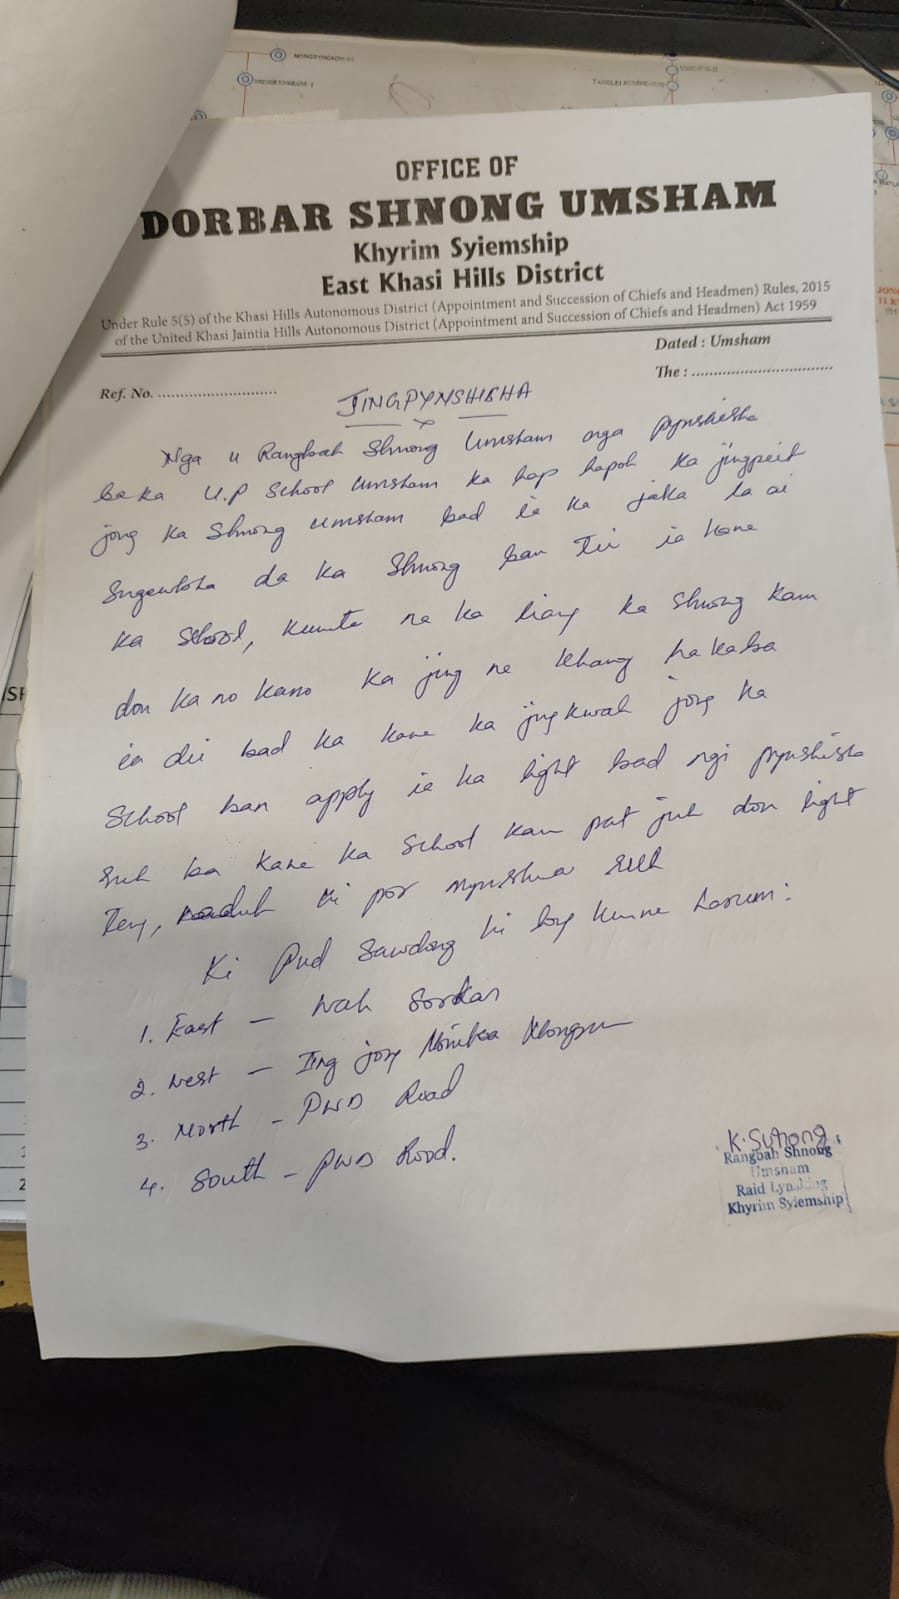 OFFICE OF
DORBAR SHNONG UMSHAM
Khyrim Syiemship
East Khasi Hills District
Under Rule 5(5) of the Khasi Hills Autonomous District (Appointment and Succession of Chiefs and Headmen) Rules, 2015
of the United Khasi Jaintia Hills Autonomous District (Appointment and Succession of Chiefs and Headmen) Act 1959
Dated : Umsham
Ref. No. ............................
The : ................................
JINGPYNSHISHA
Nga u Rangbah Shnong Umsham nga pynshisha
ba ka U.P School Umsham ka hap hapoh ka jingpeit
jong ka Shnong Umsham bad ia ka jaka la ai
Sngewbha da ka Shnong ban Tei ia kane
ka School, kumta na ka liang ka shnong kam
don ka no kano ka jing ne khang ha kaba
ia dei bad ka kane ka jingkwah jong ka
School ban apply ia ka light bad ngi pynshisha
ruh ba kane ka School kam pat juh don light
Ki Pud Sawdong ki long kumne harum:
1. East - Wah Sordar
2. West - Ing jong
3. North - PWD Road
4. South - PWD Road.
K. Suhong
Rangbah Shnong
Umsham
Raid
Khyrim Syiemship